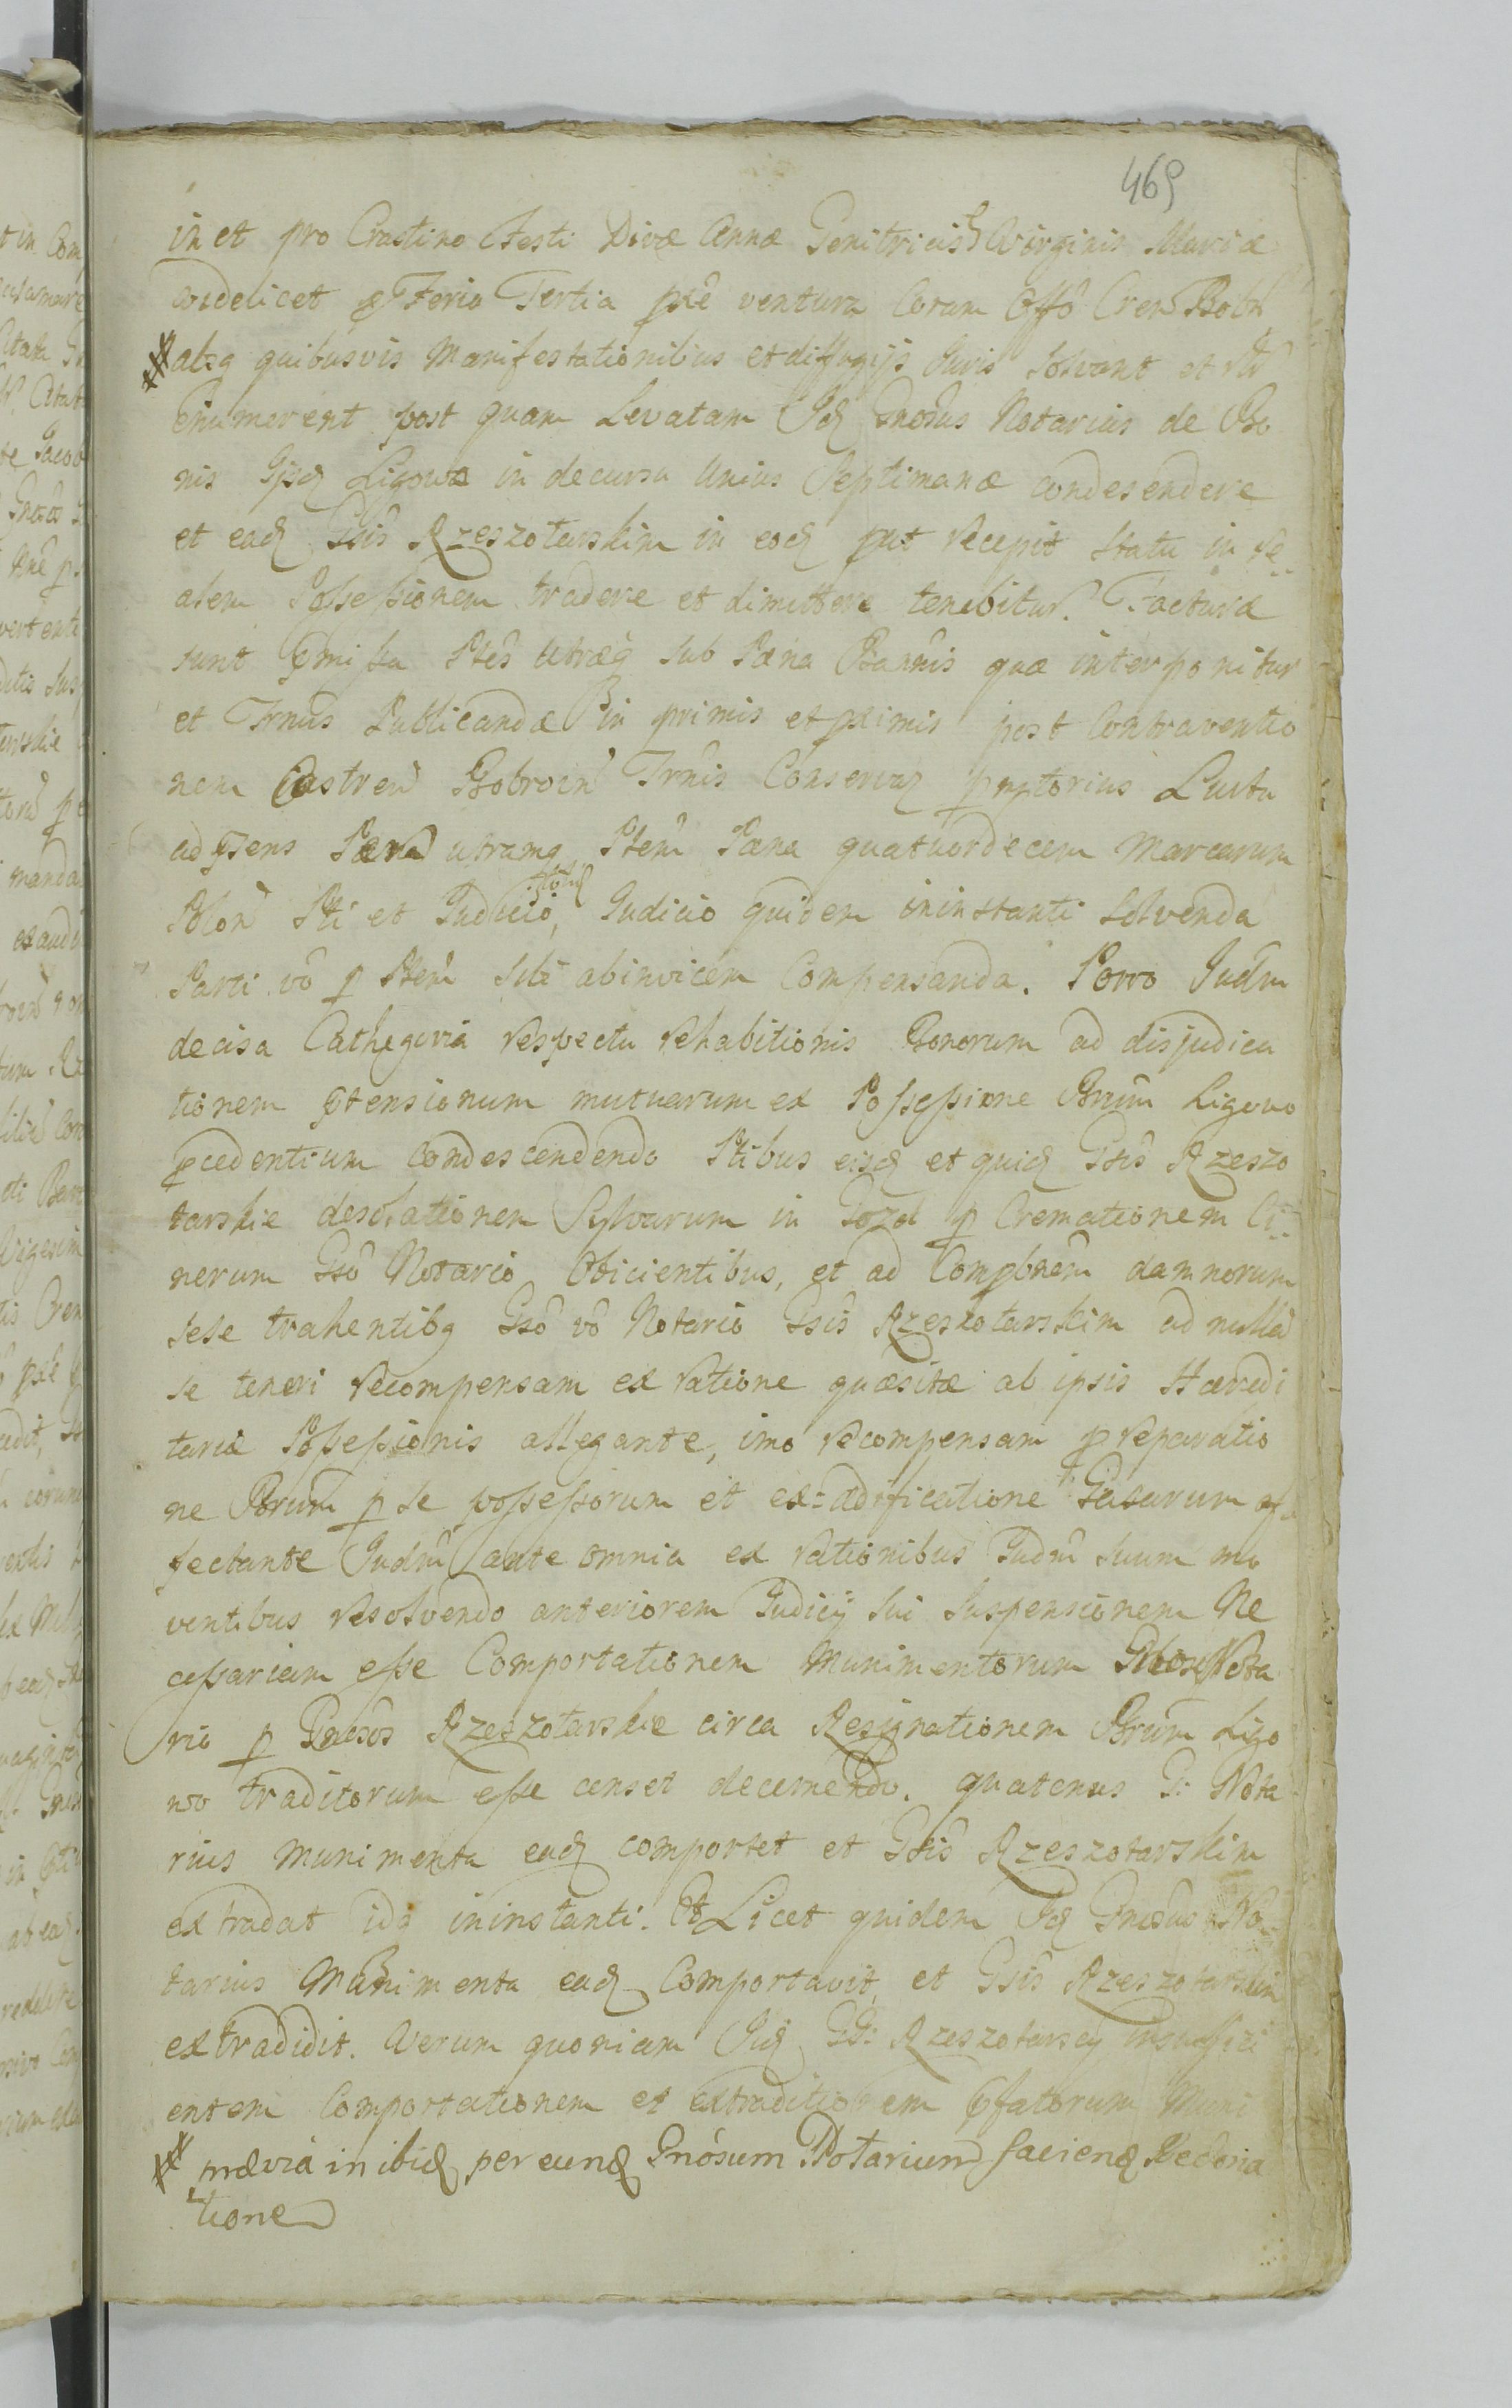 469
in et pro Crastino Festi Divæ Annæ Genitricis Virginis Mariæ
videlicet Feria Tertia pxe ventura Coram Offo Cren Bobr
absq quibusvis Manifestationibus et diffugijs Juris Solvant et
Enumerent post quam Levatam Idq Gnosus Notarius de Bo
nis Ipsq Ligowo in decursu Unius Septimanæ condesendere
et eadq Gsis Rzeszotarskim in eodq put recepit statu in re
alem Possessionem tradere et dimittere tenebitur. Factura
sunt pmissa Ptes utræq sub Pæna Bannis quæ interponitur
et Trnus Publicandæ in primis et pximis post Contraventio
nem Castren Bobrocen Trnis Conservaq pmptorius Lucta
adgens Pæna utramq Ptem Pæna quatuordecem Marcarum
Polon Pti et Judicio, Judicio quidem ininstanti Solvenda
Parti vo p Ptem sibi abinvicem Compensanda. Porro Judm
decisa Cathegoria respectu rehabitionis Bonorum ad disjudica
tionem ptensionum mutuarum ex Possessione Brum Ligowo
pcedentium Condescendendo Ptibus eisq et quiq Gsis Rzeszo
tarskie desolationem Sylvarum in Gozd p Cremationem Ci
nerum Gso Notario Obicientibus, et ad Compbnem damnorum
sese trahentibq Gso vo Notario Gsis Rzeszotarskim ad nullā
se teneri recompensam ex ratione quæsitæ ab ipsis Hæredi
tariæ Possessionis allegante, imo recompensam p reparatio
ne Brum p se possessorum et ex=ædificatione Casarum af
fectante Judm ante omnia ex rationibus Judm suum mo
ventibus resolvendo anteriorem Judicij sui suspensionem Ne
cessariam esse Comportationem Munimentorum Gnoso Nota
rio p Gnosos Rzeszotarskie circa Resignationem Brum Ligo
wo traditorum esse censet decernendo. quatenus G: Nota
rius Munimenta eadq comportet et Gsis Rzeszotarskim
extradat idq ininstanti. Et Licet quidem Idq Gnosus No
tarius Munimenta eadq Comportavit, et Gsis Rzeszotarskim
extradidit. Verum quoniam Iidq GG: Rzeszotarscy insuffici
entem Comportationem et extraditionem pfatorum Muni
prævia in ibidq per eundq Gnosum Notarium faciendq
tione